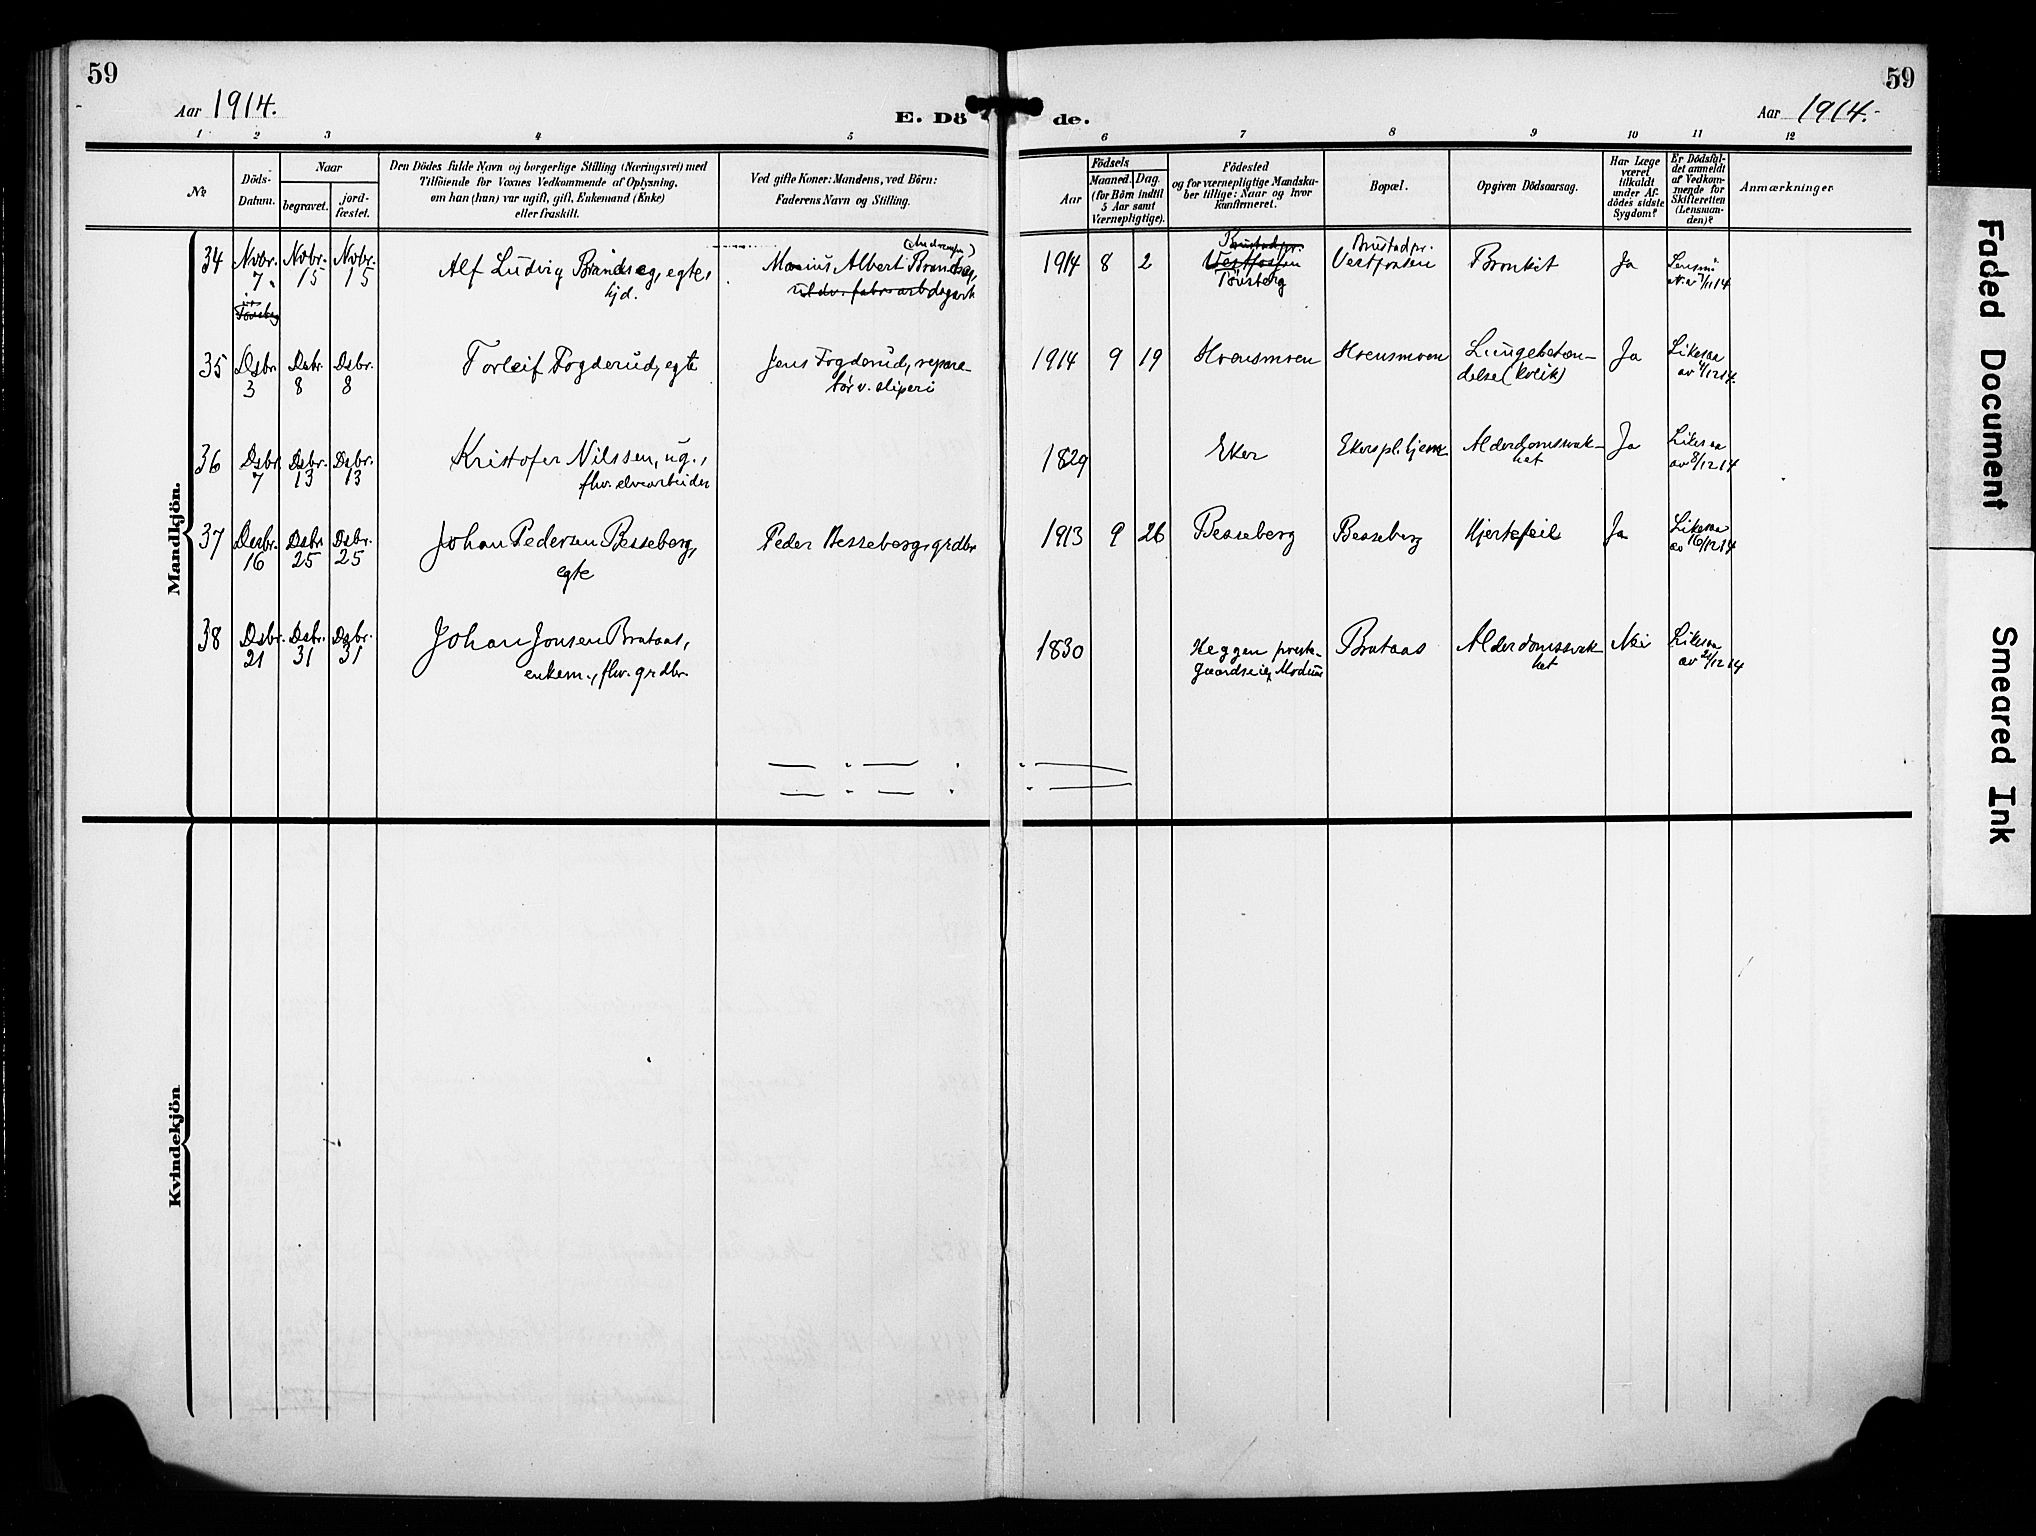 59
59
Aar 1914.
E. Döde.
Aar 1914.
1 2 3 4 5 6 7 8 9 10 11 12
No
Döds-
Datum.
Naar
begravet.
jord-
fæstet.
Den Dödes fulde Navn og borgerlige Stilling (Næringsvei) med
Tilföiende for Voxnes Vedkommende af Oplysning,
om han (hun) var ugift, gift, Enkemand (Enke)
eller fraskilt.
Ved gifte Koner: Mandens, ved Börn:
Faderens Navn og Stilling.
Födsels
Aar
Maaned. Dag.
(for Börn indtil
5 Aar samt
Værnepligtige).
Födested
og for værnepligtige Mandska-
ber tillige: Naar og hvor
konfirmeret.
Bopæl.
Opgiven Dödsaarsag.
Har Læge
været
tilkaldt
under Af-
dödes sidste
Sygdom?
Er Dödsfal-
det anmeldt
af Vedkom-
mende for
Skifteretten
(Lensman-
den)?
Anmærkninger
Mandkjön.
34
Nvbr.
7.
Nvbr.
15
Nvbr.
15
Alf Ludvig Brandseg, egte,
Marius Albert
1914 8 2
Brustadpr.
Vestfossen
Tönsberg
Brustadpr.
Vestfossen
Bronkit
Ja
35
Dsbr.
3
Dsbr.
8
Dsbr.
8
Torleif Fogderud, egte
Jens Fogderud, repara-
tör v. sliperi
1914 9 19
Hoensmoen
Hoensmoen
Lungebeten-
delse
Ja
Likesaa
av 4/12 14.
36
Dsbr.
7
Dsbr.
13
Dsbr.
13
Kristofer Nilssen, ug.,
fhv. elvearbeider
1829
Eker
Ekers pl.hjem
Alderdomssvak-
het
Ja
Likesaa
av 8/12 14
37
Desbr.
16
Dsbr
25
Dsbr.
25
Johan Pedersen Besseberg,
egte
Peder Besseberg, grdbr
1913 9 26
Besseberg
Besseberg
Hjertefeil
Ja
Likesaa
av 16/12 14
38
Dsbr.
21
Dsbr.
31
Dsbr.
31
Johan Jonsen Brataas,
enkem., fhv. grdbr.
1830
Heggen prest-
gaardseie, Modum
Brataas
Alderdomssvak-
het
Nei
Likesaa
av 21/12 14
Kvindekjön
Faded Document
Smeared Ink